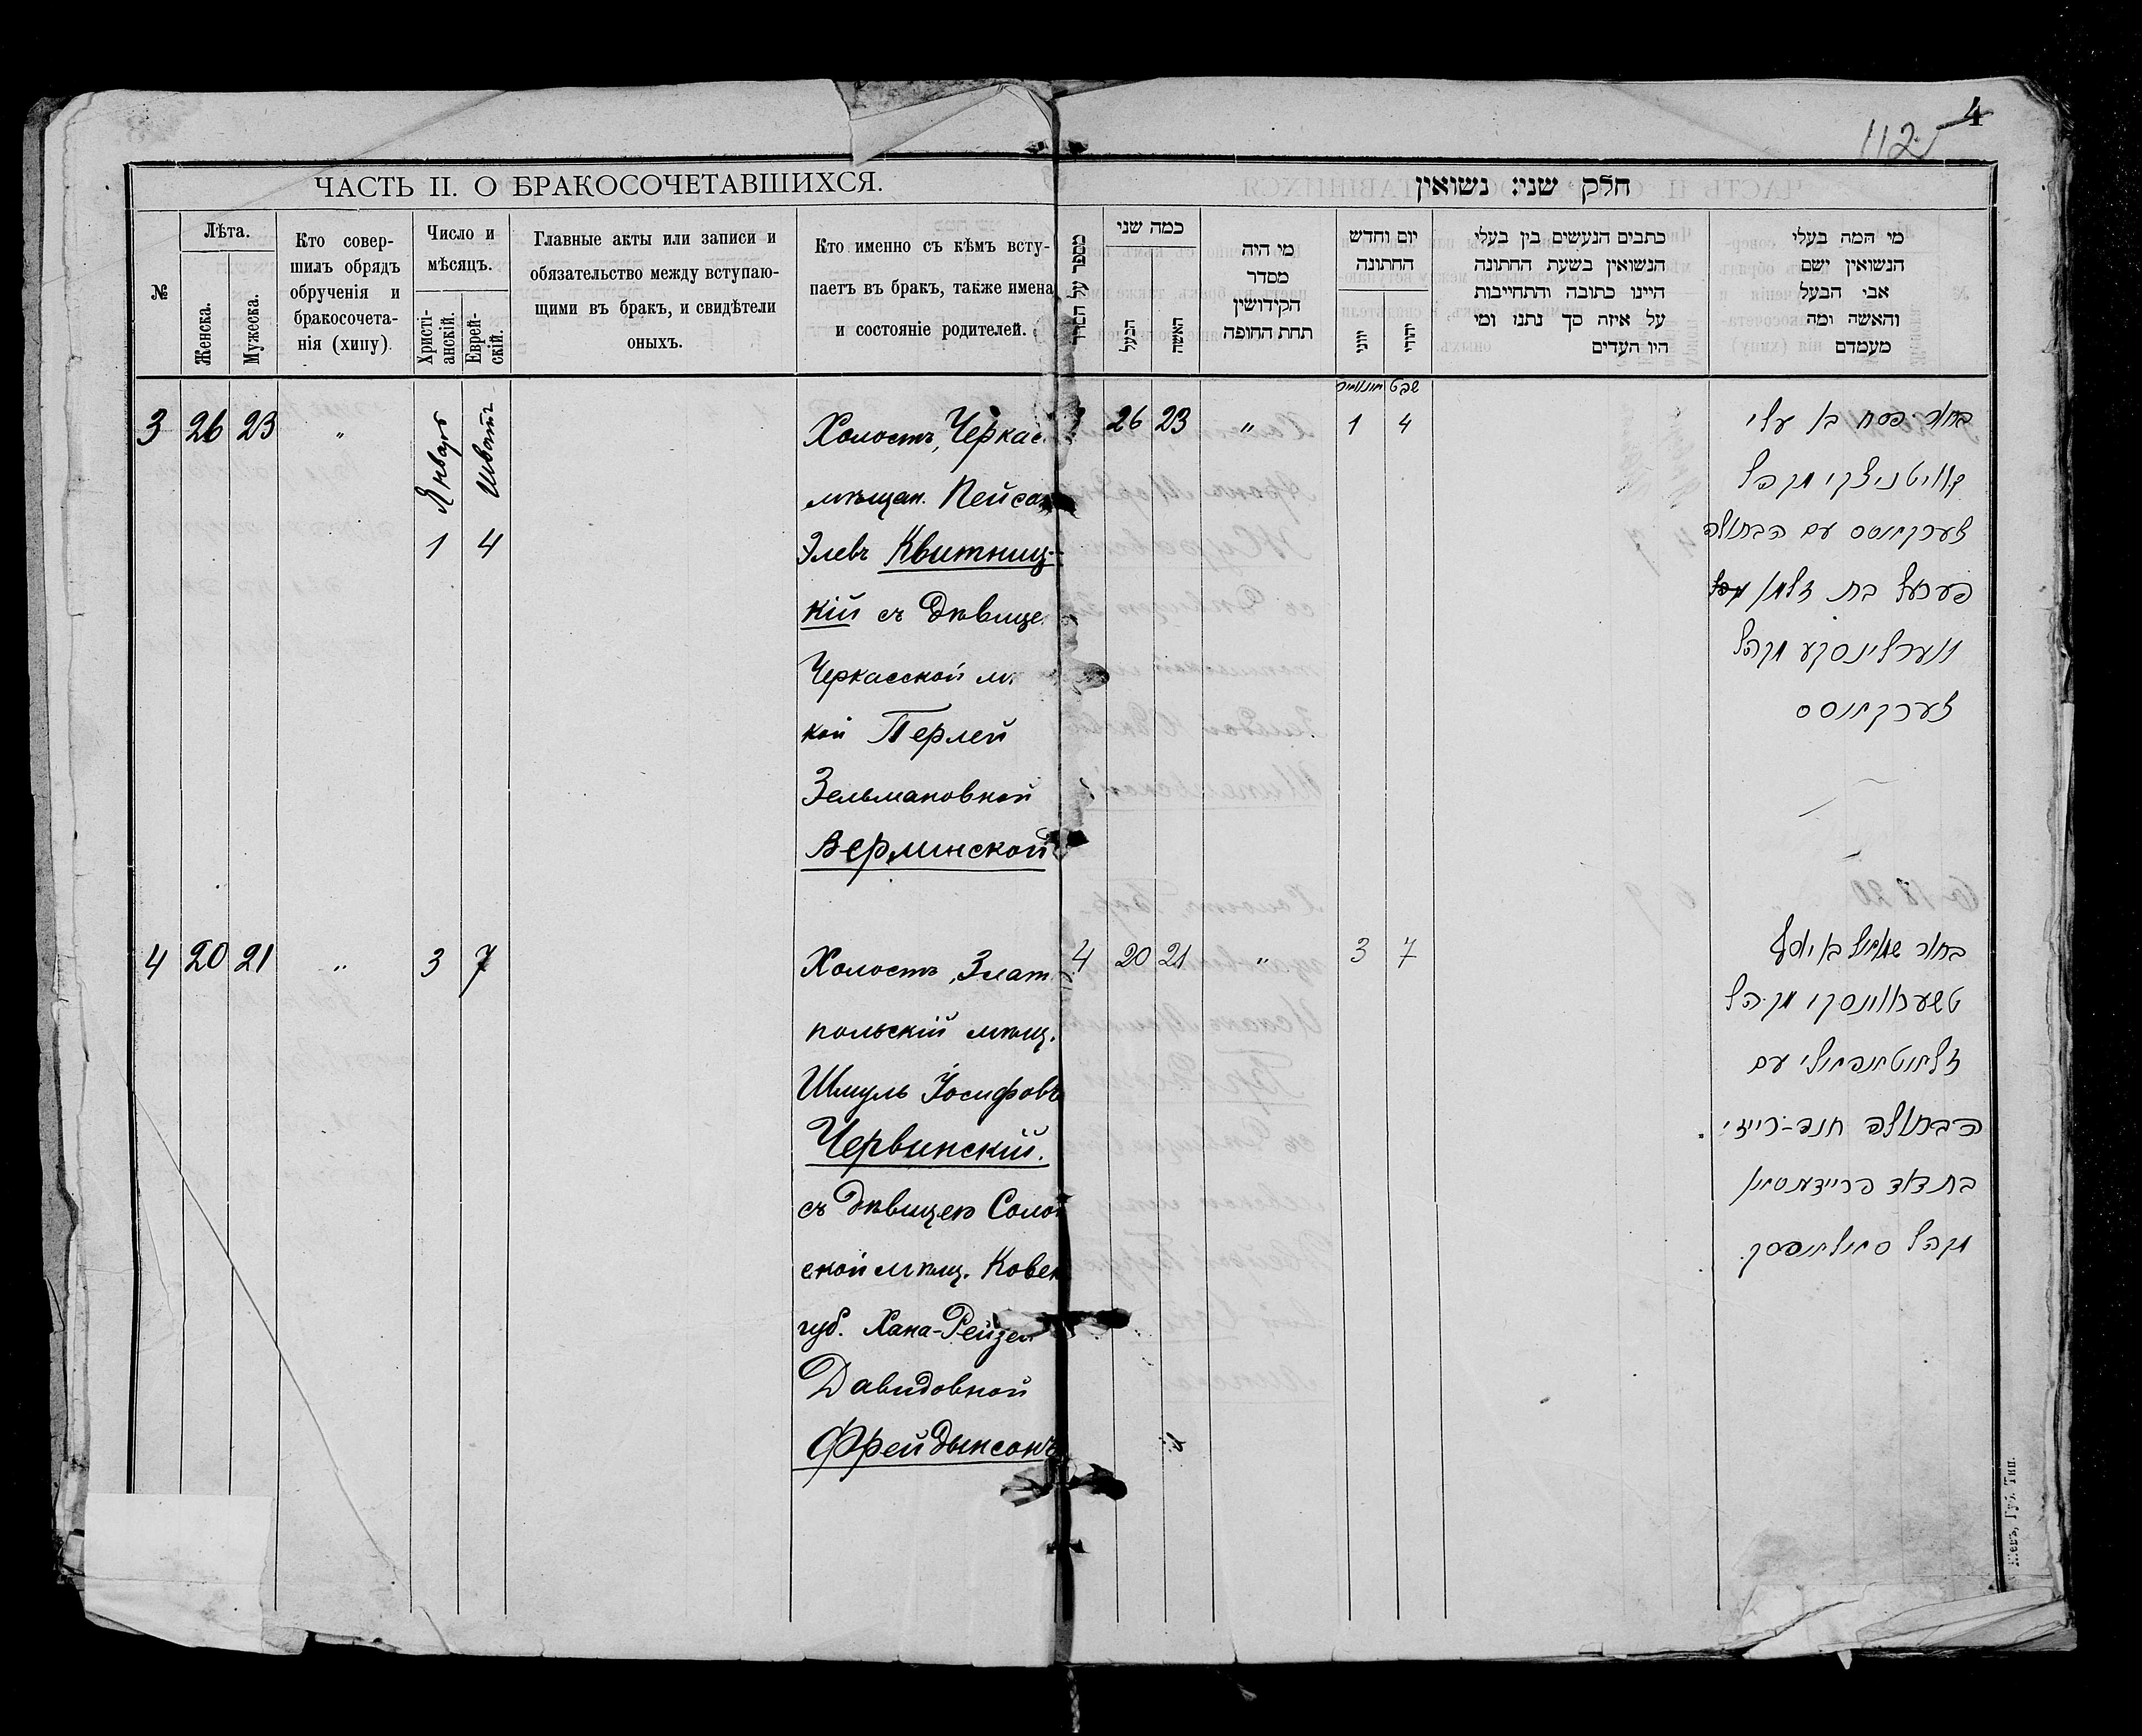 4
112
ЧАСТЬ II. О БРАКОСОЧЕТАВШИХСЯ.
№
Лѣта.
Женска.
Мужеска.
Кто совер-
шилъ обрядъ
обрученія и
бракосочета-
нія (хипу).
Число и
мѣсяцъ.
Христі-
анскій.
Еврей-
скій.
Главные акты или записи и
обязательство между вступаю-
щими въ бракъ, и свидѣтели
оныхъ.
Кто именно съ кѣмъ всту-
паетъ въ бракъ, также имена
и состояніе родителей.
3 26 23 „
Январь
1
Шватъ
4
Холостъ, Черкас.
мѣщан. Пейсах
Элевъ Квитниц-
кій съ дѣвице
Черкасской м
кой Перлей
Зельмановной
Верлинской
4 20 21 „ 3 7
Холостъ, Злат
польскій мѣщ.
Шмуль Іосифовъ
Червинскій.
съ дѣвицею Солок
ской мѣщ. Ковен
губ. Хана-Рейзей
Давидовной
Фрейдынсонъ
חלק שני: נשואין
מספר על הסדר
כמה שני
הבעל
האשה
מי היה
מסדר
הקידושין
תחת החופה
יום וחדש
החתונה
יוני
יהודי
כתבים הנעשים בין בעלי
הנשואין בשעת החתונה
היינו כתובה והתחייבות
על איזה סך נתנו ומי
היו העדים
מי המה בעלי
הנשואין ישם
אבי הבעל
והאשה ומה
מעמדם
שבט
3 26 23 „ 1 4
בחור פסח בן עלי
קוויטניצקי מקהל
צערקאסס עם הבתולה
פערעל בת זלמן
ווערלינסקע מקהל
צערקאסס
4 20 21 „ 3 7
בחור שמואל בן יוסף
טשערווינסקי מקהל
זלאטאפאלי עם
הבתולה חנה-רייזי
בת דוד פריידענסאן
מקהל סאלאקסק.
Кіевъ, Губ. Тип.